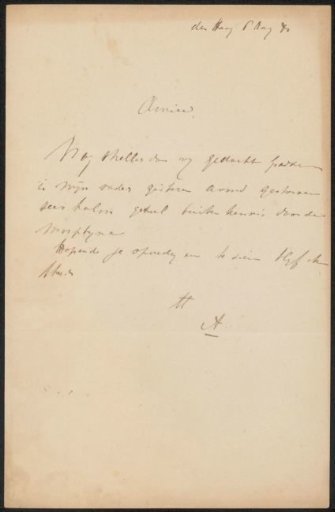 den Haag 8 Aug
Amice.
Nog sneller dan wij gedacht hadden
is mijn vader gisteren avond gestorven
zeer kalm geheel buiten kennis door de
morphine.
Hopende je spoedig eens te zien blijf ik
tt
A